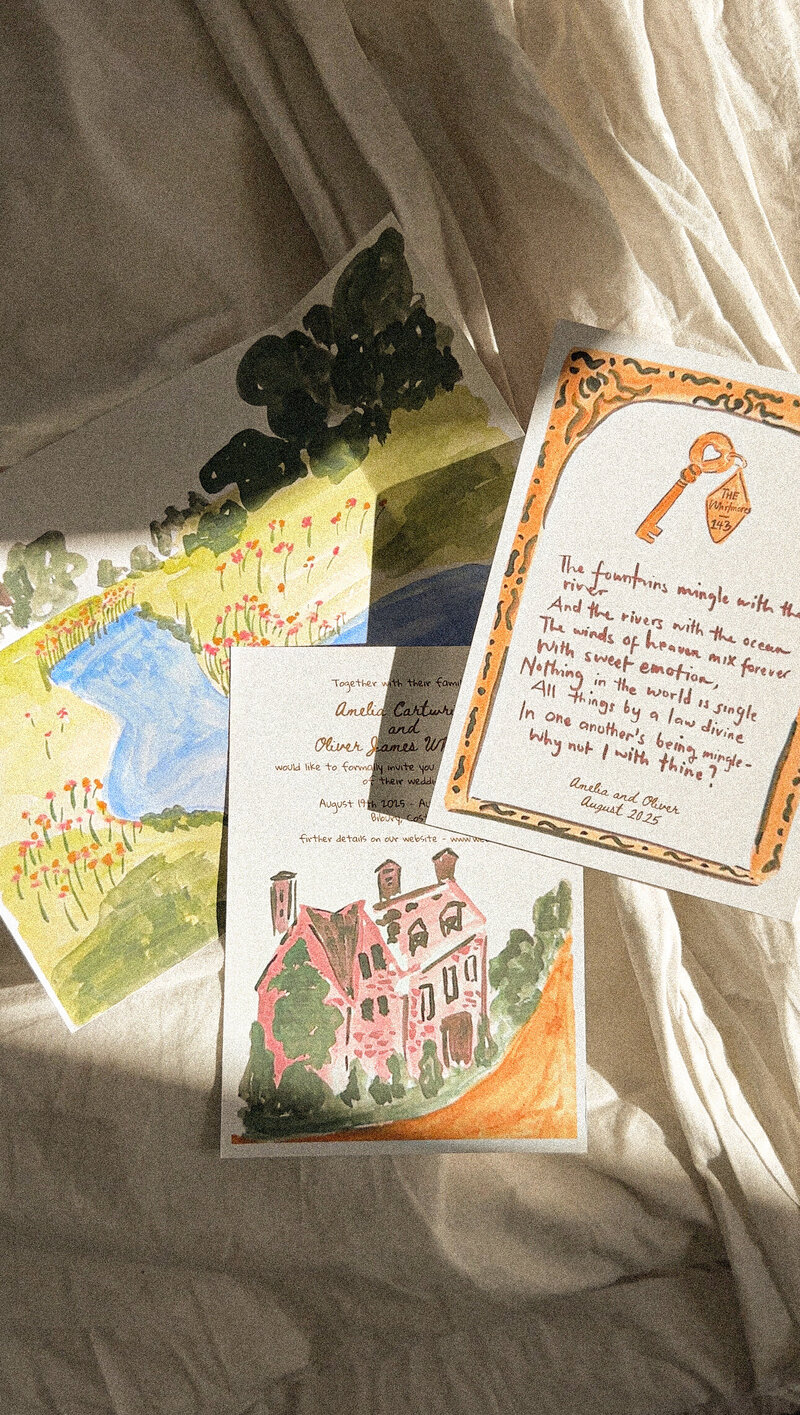 Together with their famil
Amelia Cartwri
and
Oliver James Wh
would like to formally invite you
of their weddi
August 19th 2025 - Au
Bibury, Cots
firther details on our website - www.we
THE
Whitmores
143
The fountains mingle with the
river
And the rivers with the ocean
The winds of heaven mix forever
With sweet emotion,
Nothing in the world is single
All things by a law divine
In one another's being mingle-
Why not I with thine?
Amelia and Oliver
August 2025